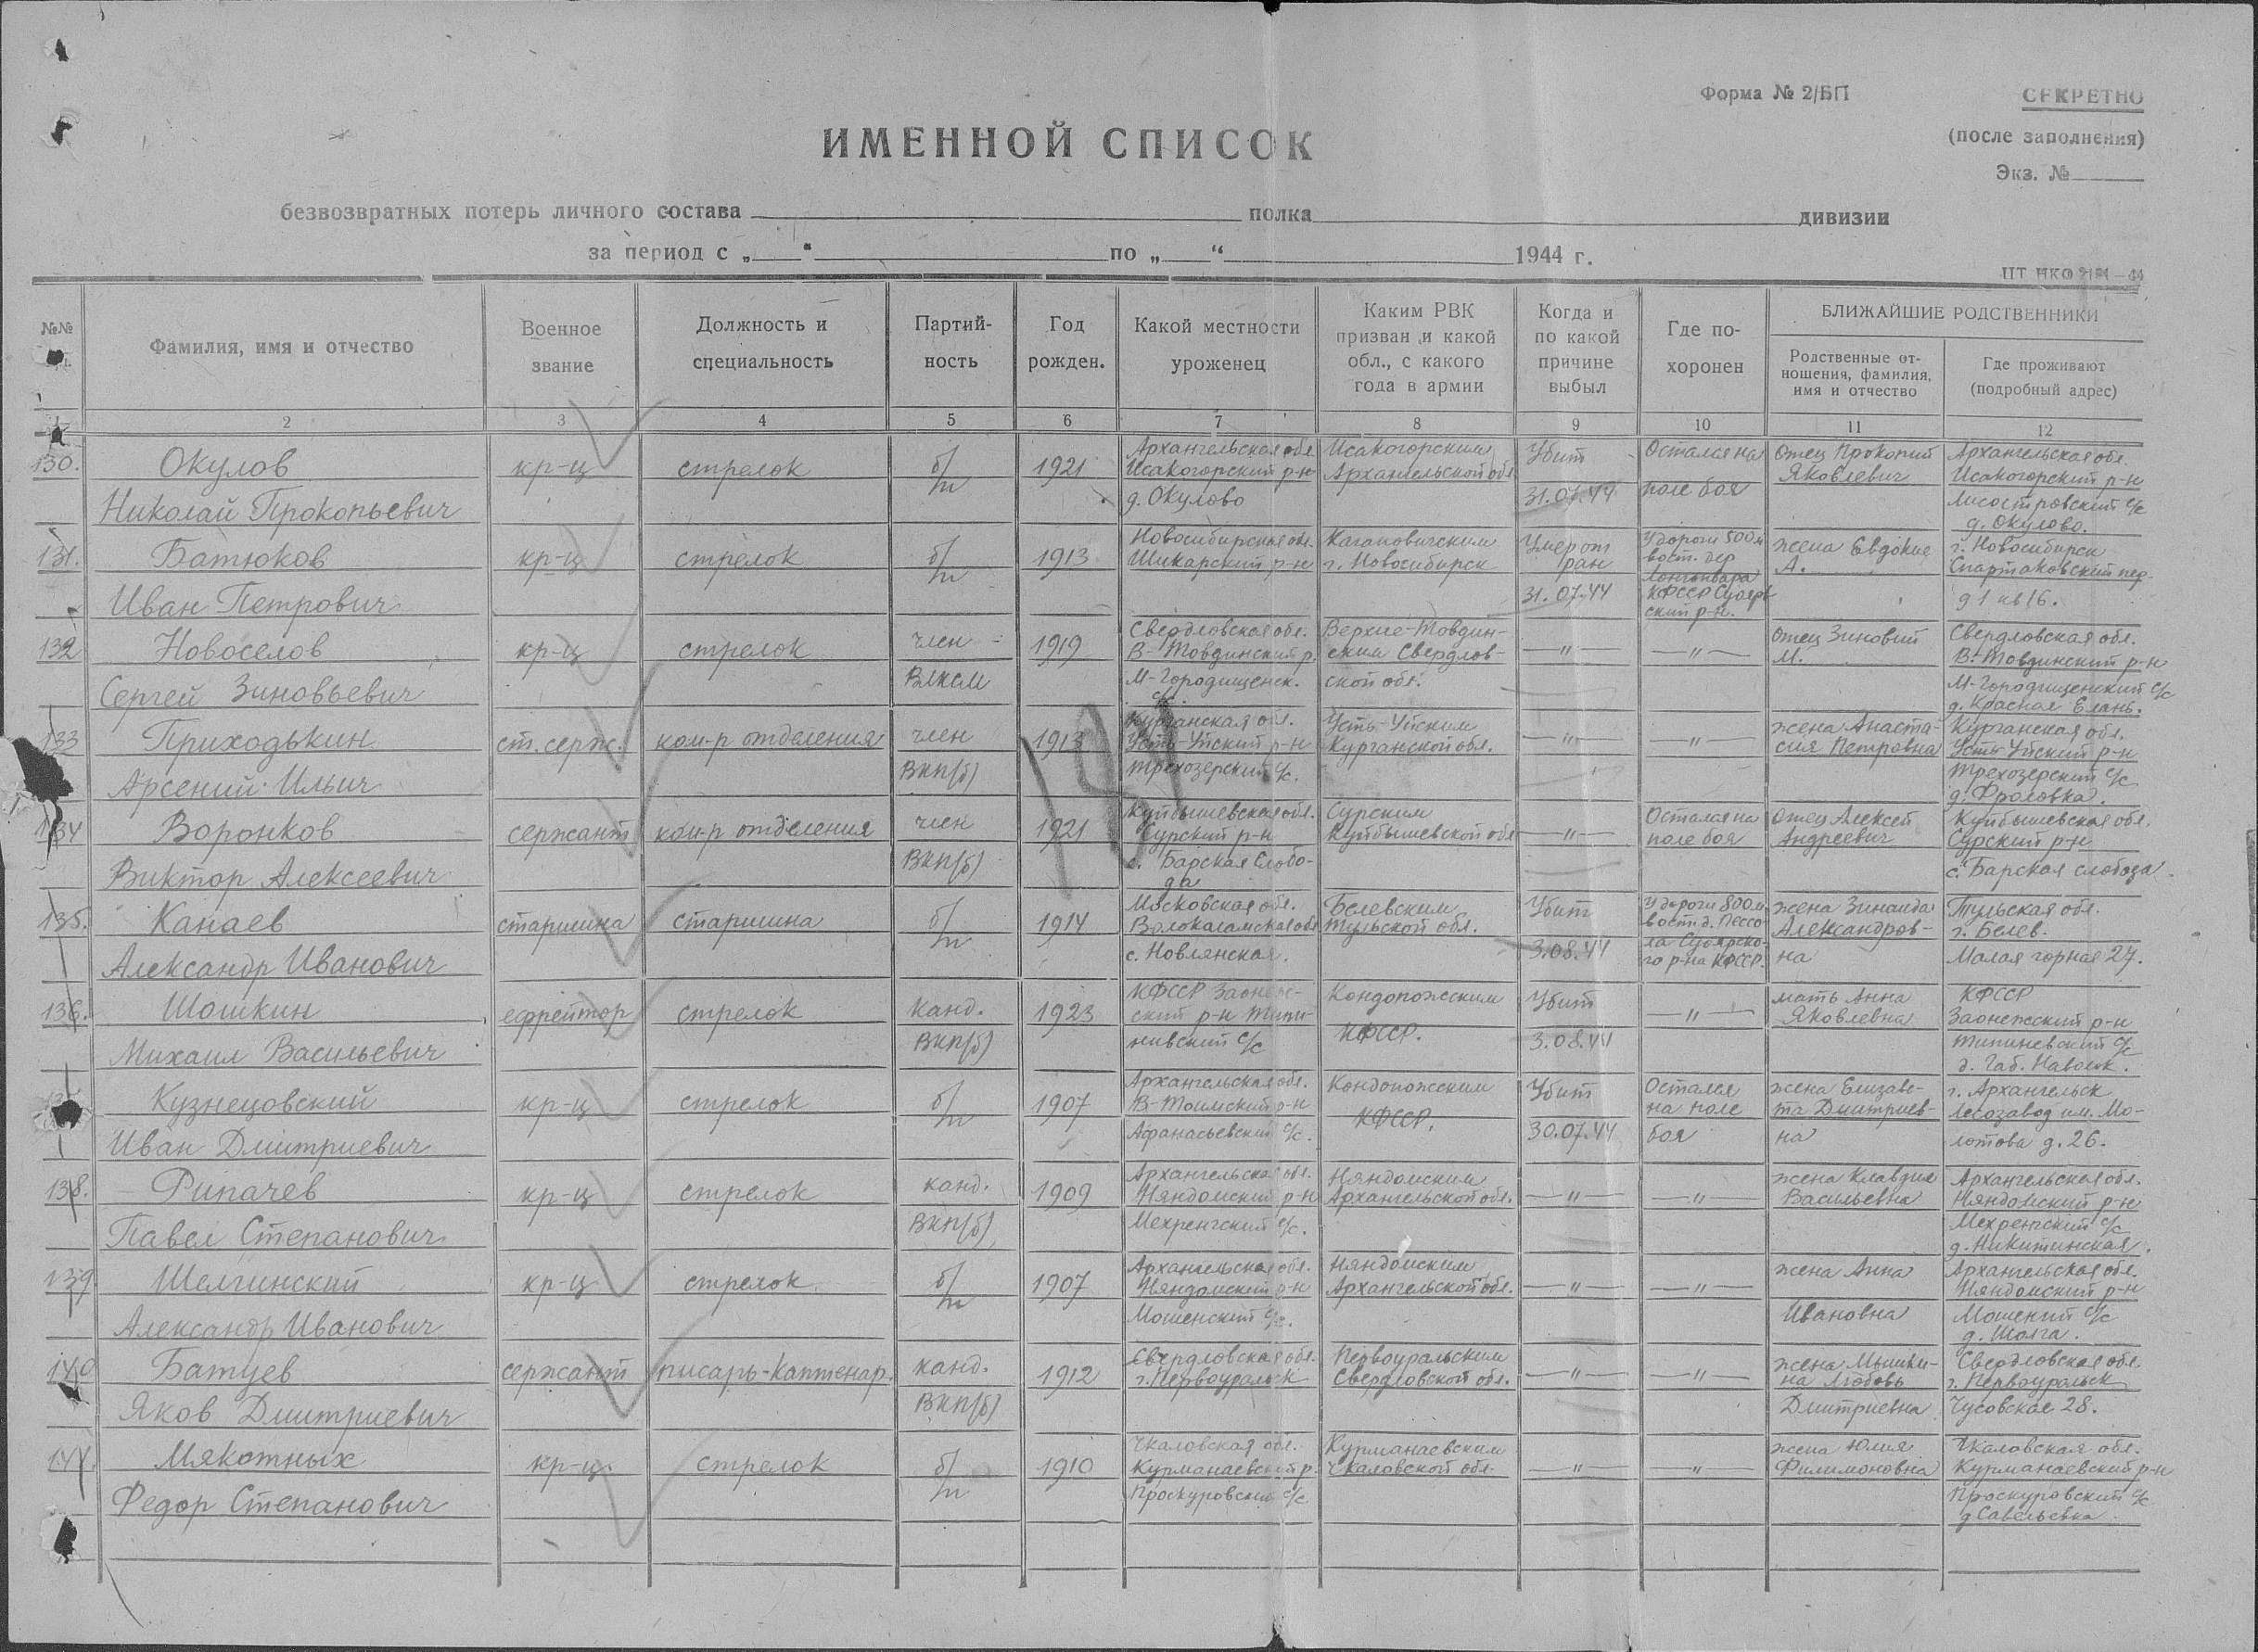 Форма № 2/БП
СЕКРЕТНО
(после заполнения)
Экз. №
ИМЕННОЙ СПИСОК
безвозвратных потерь личного состава полка дивизии
за период с „ “ по „ “ 1944 г.
№№ Фамилия, имя и отчество Военное звание Должность и специальность Партий-ность Год рожден. Какой местности уроженец Каким РВК призван и какой обл., с какого года в армии Когда и по какой причине выбыл Где по-хоронен БЛИЖАЙШИЕ РОДСТВЕННИКИ
Родственные от-ношения, фамилия, имя и отчество Где проживают (подробный адрес)
2 3 4 5 6 7 8 9 10 11 12
130. Окулов кр-ц стрелок б/п 1921 Архангельская обл. Исакогорский р-н д. Окулово Исакогорским Архангельской обл. Убит 31.07.44 Остался на поле боя Отец Прокопий Яковлевич Архангельская обл. Исакогорский р-н Лисостровский с/с д. Окулово.
Николай Прокопьевич
131. Батюков кр-ц стрелок б/п 1913 Новосибирская обл. р-н Кагановичским г. Новосибирск Умер от ран 31.07.44 У дороги 500 м вост. дер. КФССР Суоярвский р-н. жена Евдокия А. г. Новосибирск Спартаковский пер. д 1 кв 16.
Иван Петрович
132 Новоселов кр-ц стрелок член ВЛКСМ 1919 Свердловская обл. В-Товдинский р. М-Городищенск. с/с Верхне-Товдин-ским Свердлов-ской обл. —"— —"— Отец Зиновий М. Свердловская обл. В-Товдинский р-н М-Городищенский с/с д. Красная Елань.
Сергей Зиновьевич
133 Приходькин ст. серж. ком-р отделения член ВКП(б) 1913 Курганская обл. Усть-Уйский р-н Трехозерский с/с. Усть-Уйским Курганской обл. —"— —"— жена Анаста-сия Петровна Курганская обл. Усть-Уйский р-н Трехозерский с/с д. Фроловка.
Арсений Ильич
134 Воронков сержант ком-р отделения член ВКП(б) 1921 Куйбышевская обл. Сурский р-н с. Барская Слобо-да Сурским Куйбышевской обл —"— Остался на поле боя Отец Алексей Андреевич Куйбышевская обл. Сурский р-н с. Барская слобода.
Виктор Алексеевич
135. Канаев старшина старшина б/п 1914 Московская обл. Волокаламская обл с. Новлянская. Белевским Тульской обл. Убит 3.08.44 У дороги 800 м вост д. Суоярско-го р-на КФССР. жена Зинаида Александров-на Тульская обл. г. Белев. Малая горная 27.
Александр Иванович
136. Шошкин ефрейтор стрелок канд. ВКП(б) 1923 КФССР Заонеж-ский р-н Типи-нивский с/с Кондопожским КФССР. Убит 3.08.44 —"— мать Анна Яковлевна КФССР Заонежский р-н Типиневский с/с д. Габ. Наволок.
Михаил Васильевич
Кузнецовский кр-ц стрелок б/п 1907 Архангельская обл. В-Тоимский р-н Афанасьевский с/с. Кондопожским КФССР. Убит 30.07.44 Остался на поле боя жена Елизаве-та Дмитриев-на г. Архангельск Лесозавод им. Мо-лотова д. 26.
Иван Дмитриевич
138. Рипачев кр-ц стрелок канд. ВКП(б) 1909 Архангельская обл. Няндомский р-н Мехренгский с/с. Няндомским Архангельской обл. —"— —"— жена Клавдия Васильевна Архангельская обл. Няндомский р-н Мехренгский с/с д. Никитинская.
Павел Степанович
139 Шелгинский кр-ц стрелок б/п 1907 Архангельская обл. Няндомский р-н Мошенский с/с. Няндомским Архангельской обл. —"— —"— жена Анна Ивановна Архангельская обл. Няндомский р-н Мошенский с/с д. Шолга.
Александр Иванович
140 Батуев сержант писарь-каптенар. канд. ВКП(б) 1912 Свердловская обл. г. Первоуральск Первоуральским Свердловской обл. —"— —"— жена Мышки-на Любовь Дмитриевна Свердловская обл. г. Первоуральск Чусовская 28.
Яков Дмитриевич
141. Мякотных кр-ц. стрелок б/п 1910 Чкаловская обл. Курманаевский р. Проскуровский с/с Курманаевским Чкаловской обл. —"— —"— жена Юлия Филимоновна Чкаловская обл. Курманаевский р-н Проскуровский с/с д Савельевка.
Федор Степанович